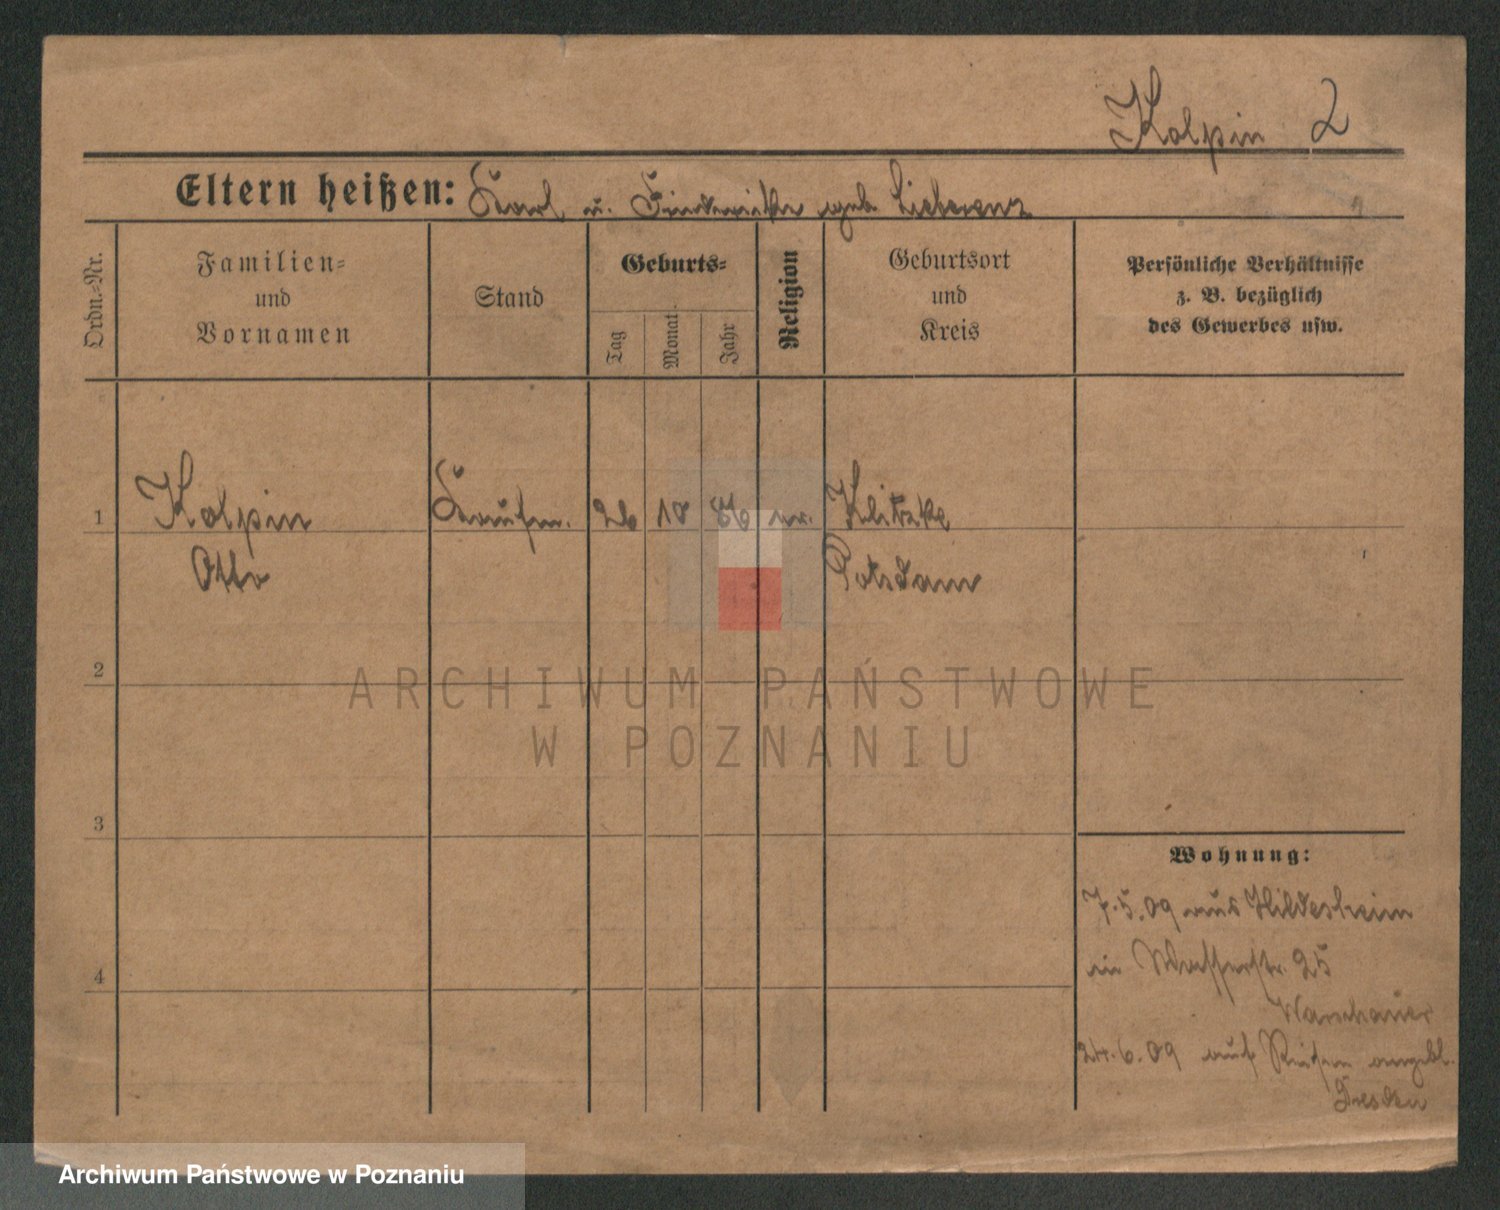 Kolpin 2
Eltern heißen: Karl u. Friederike geb. Lieberenz
Ordn.-Nr.
Familien-
und
Vornamen
Stand
Geburts-
Tag
Monat
Jahr
Religion
Geburtsort
und
Kreis
Persönliche Verhältnisse
z. B. bezüglich
des Gewerbes usw.
1 Kolpin Kaufm. 26 10 ev. Klitzke
Otto Potsdam
2
ARCHIWUM PAŃSTWOWE
W POZNANIU
3
Wohnung:
7.5.09 aus Hildesheim
in Wasserstr. 25
Warschauer
4
24.6.09 auf Reisen angebl.
Dresden
Archiwum Państwowe w Poznaniu